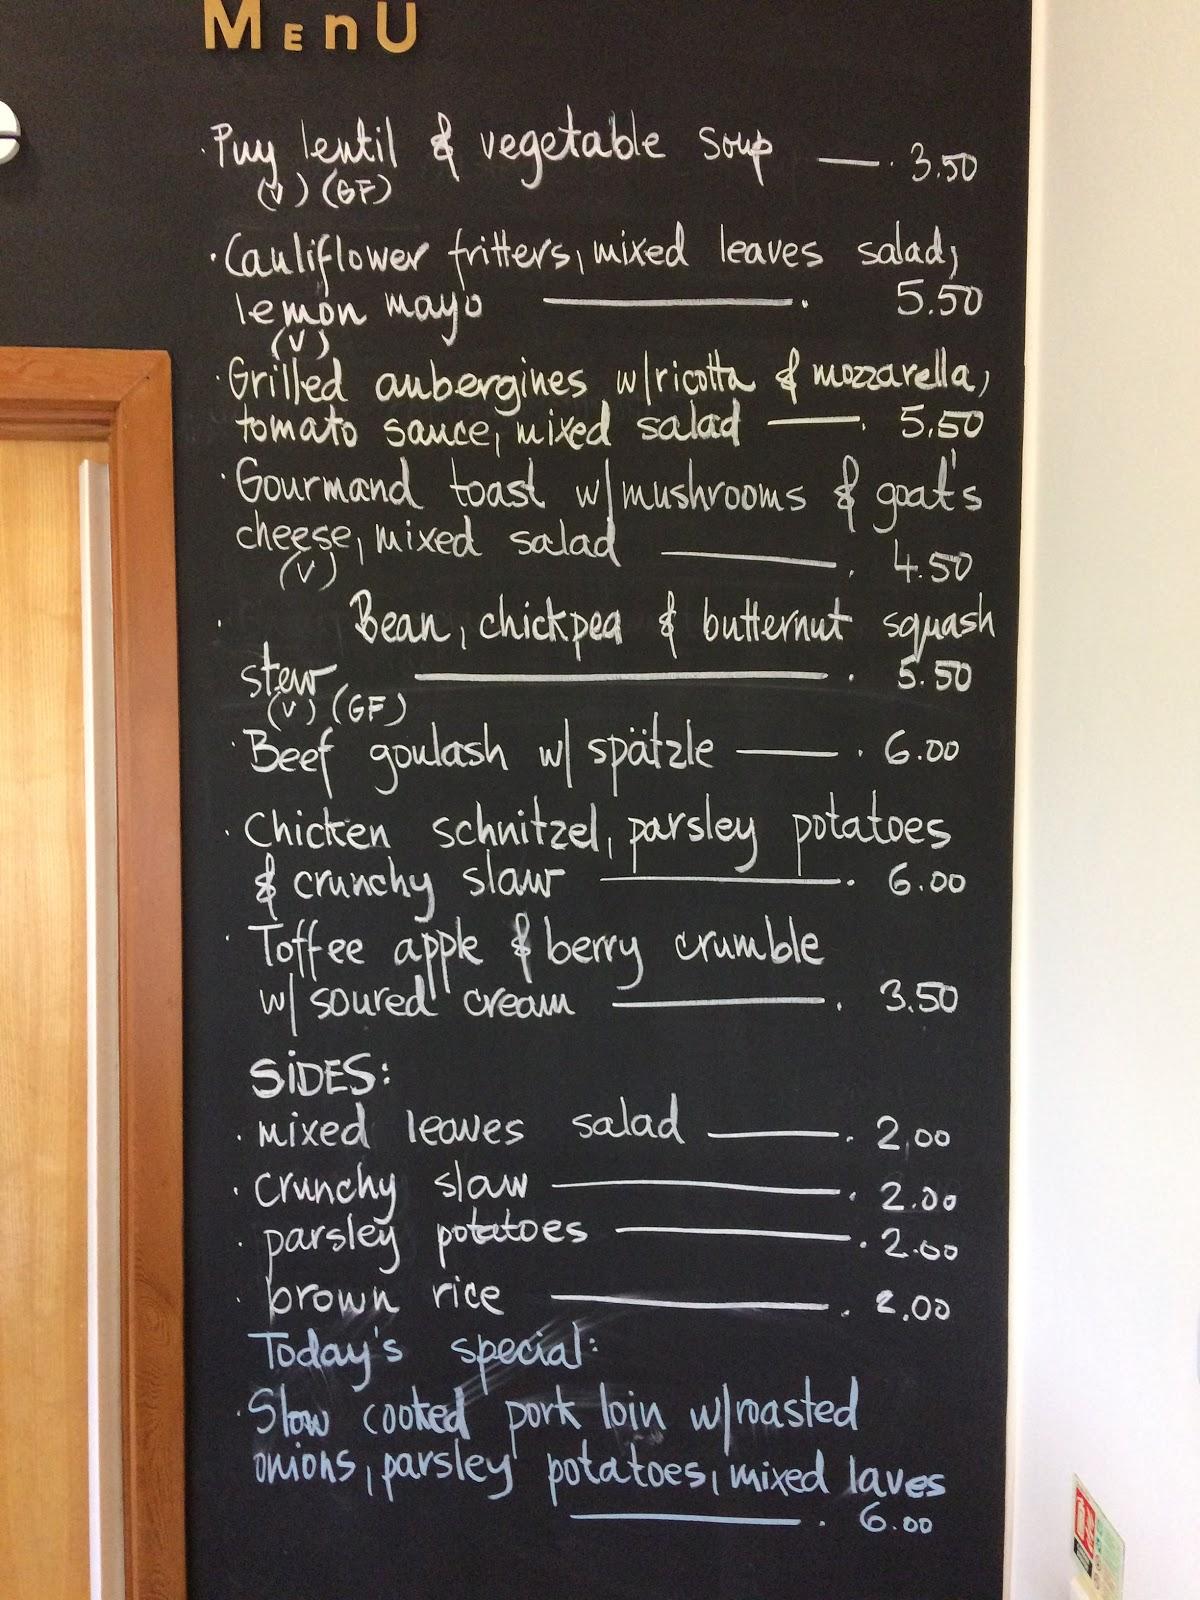 MEnU
· Puy lentil & vegetable soup —. 3.50
(V) (GF)
· Cauliflower fritters, mixed leaves salad,
lemon mayo —. 5.50
(V)
· Grilled aubergines w/ricotta & mozzarella,
tomato sauce, mixed salad —. 5.50
· Gourmand toast w/mushrooms & goat's
cheese, mixed salad —. 4.50
(V)
· Bean, chickpea & butternut squash
stew —. 5.50
(V) (GF)
· Beef goulash w/ spätzle —. 6.00
· Chicken schnitzel, parsley potatoes
& crunchy slaw —. 6.00
· Toffee apple & berry crumble
w/ soured cream —. 3.50
SiDES:
· mixed leaves salad —. 2.00
· crunchy slaw —. 2.00
· parsley potatoes —. 2.00
· brown rice —. 2.00
Today's special:
· Slow cooked pork loin w/roasted
onions, parsley potatoes, mixed laves
—. 6.00